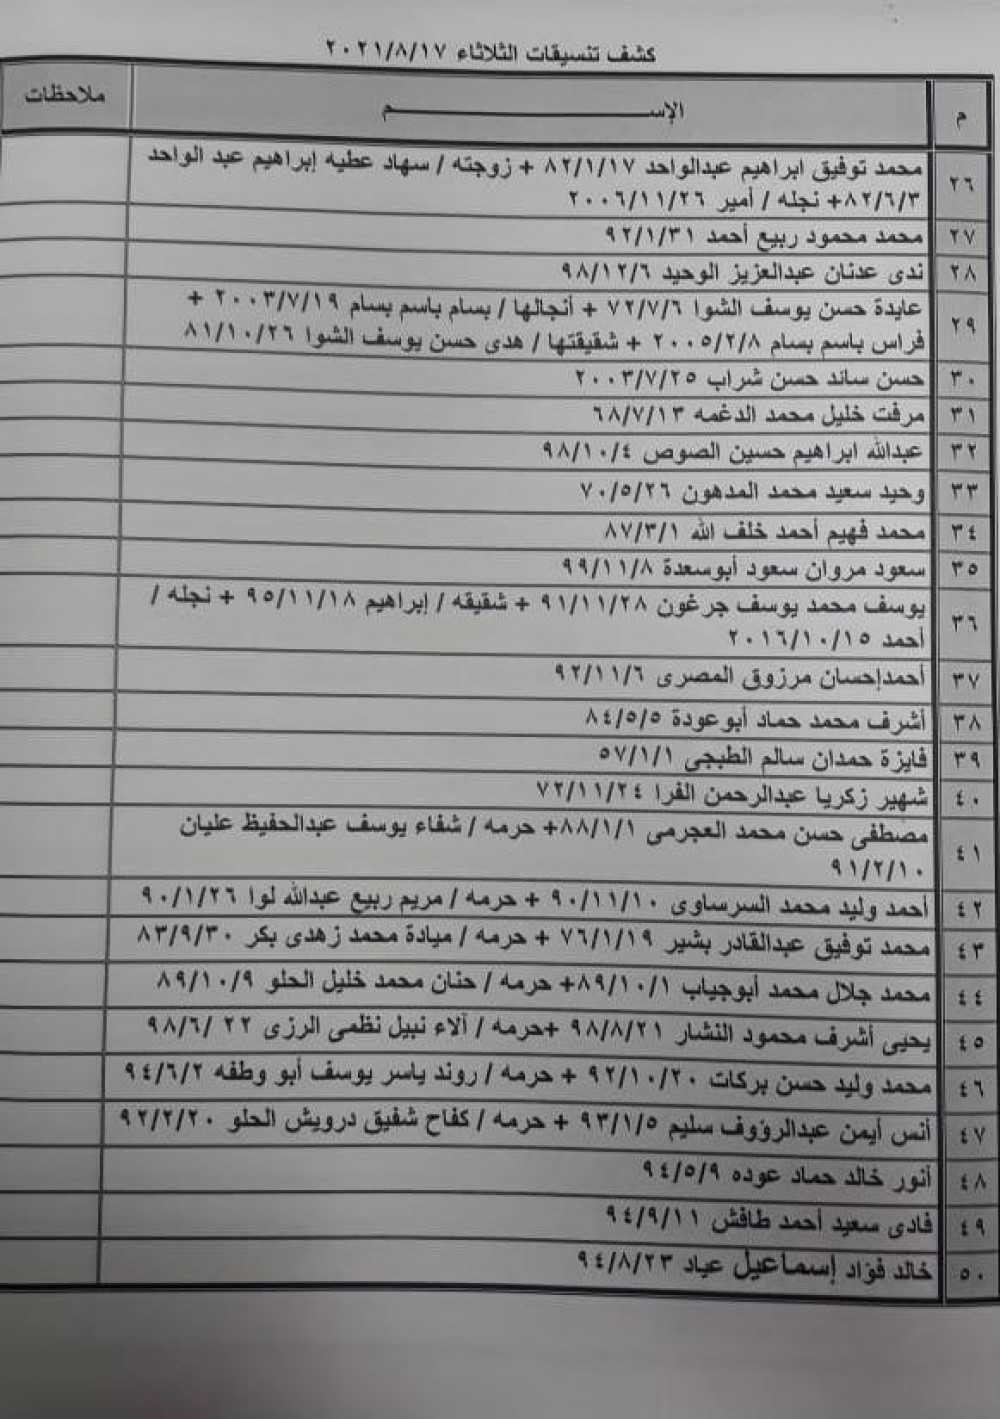 كشف تنسيقات الثلاثاء ٢٠٢١/٨/١٧
م الإســـــــــم ملاحظات
٢٦ محمد توفيق ابراهيم عبدالواحد ٨٢/١/١٧ + زوجته / سهاد عطيه إبراهيم عبد الواحد
٨٢/٦/٣+ نجله / أمير ٢٠٠٦/١١/٢٦
٢٧ محمد محمود ربيع أحمد ٩٢/١/٣١
٢٨ ندى عدنان عبدالعزيز الوحيد ٩٨/١٢/٦
٢٩ عايدة حسن يوسف الشوا ٧٢/٧/٦ + أنجالها / بسام باسم بسام ٢٠٠٣/٧/١٩ +
فراس باسم بسام ٢٠٠٥/٢/٨ + شقيقتها / هدى حسن يوسف الشوا ٨١/١٠/٢٦
٣٠ حسن ساند حسن شراب ٢٠٠٣/٧/٢٥
٣١ مرفت خليل محمد الدغمه ٦٨/٧/١٣
٣٢ عبدالله ابراهيم حسين الصوص ٩٨/١٠/٤
٣٣ وحيد سعيد محمد المدهون ٧٠/٥/٢٦
٣٤ محمد فهيم أحمد خلف الله ٨٧/٣/١
٣٥ سعود مروان سعود أبوسعدة ٩٩/١١/٨
٣٦ يوسف محمد يوسف جرغون ٩١/١١/٢٨ + شقيقه / إبراهيم ٩٥/١١/١٨ + نجله /
أحمد ٢٠١٦/١٠/١٥
٣٧ أحمدإحسان مرزوق المصرى ٩٢/١١/٦
٣٨ أشرف محمد حماد أبوعودة ٨٤/٥/٥
٣٩ فايزة حمدان سالم الطبجى ٥٧/١/١
٤٠ شهير زكريا عبدالرحمن الفرا ٧٢/١١/٢٤
٤١ مصطفى حسن محمد العجرمى ٨٨/١/١+ حرمه / شفاء يوسف عبدالحفيظ عليان
٩١/٢/١٠
٤٢ أحمد وليد محمد السرساوى ٩٠/١١/١٠ + حرمه / مريم ربيع عبدالله لوا ٩٠/١/٢٦
٤٣ محمد توفيق عبدالقادر بشير ٧٦/١/١٩ + حرمه / ميادة محمد زهدى بكر ٨٣/٩/٣٠
٤٤ محمد جلال محمد أبوجياب ٨٩/١٠/١+ حرمه / حنان محمد خليل الحلو ٨٩/١٠/٩
٤٥ يحيى أشرف محمود النشار ٩٨/٨/٢١ +حرمه / آلاء نبيل نظمى الرزى ٢٢ /٩٨/٦
٤٦ محمد وليد حسن بركات ٩٢/١٠/٢٠ + حرمه / روند ياسر يوسف أبو وطفه ٩٤/٦/٢
٤٧ أنس أيمن عبدالرؤوف سليم ٩٣/١/٥ + حرمه / كفاح شفيق درويش الحلو ٩٢/٢/٢٠
٤٨ أنور خالد حماد عوده ٩٤/٥/٩
٤٩ فادى سعيد أحمد طافش ٩٤/٩/١١
٥٠ خالد فؤاد إسماعيل عياد ٩٤/٨/٢٣